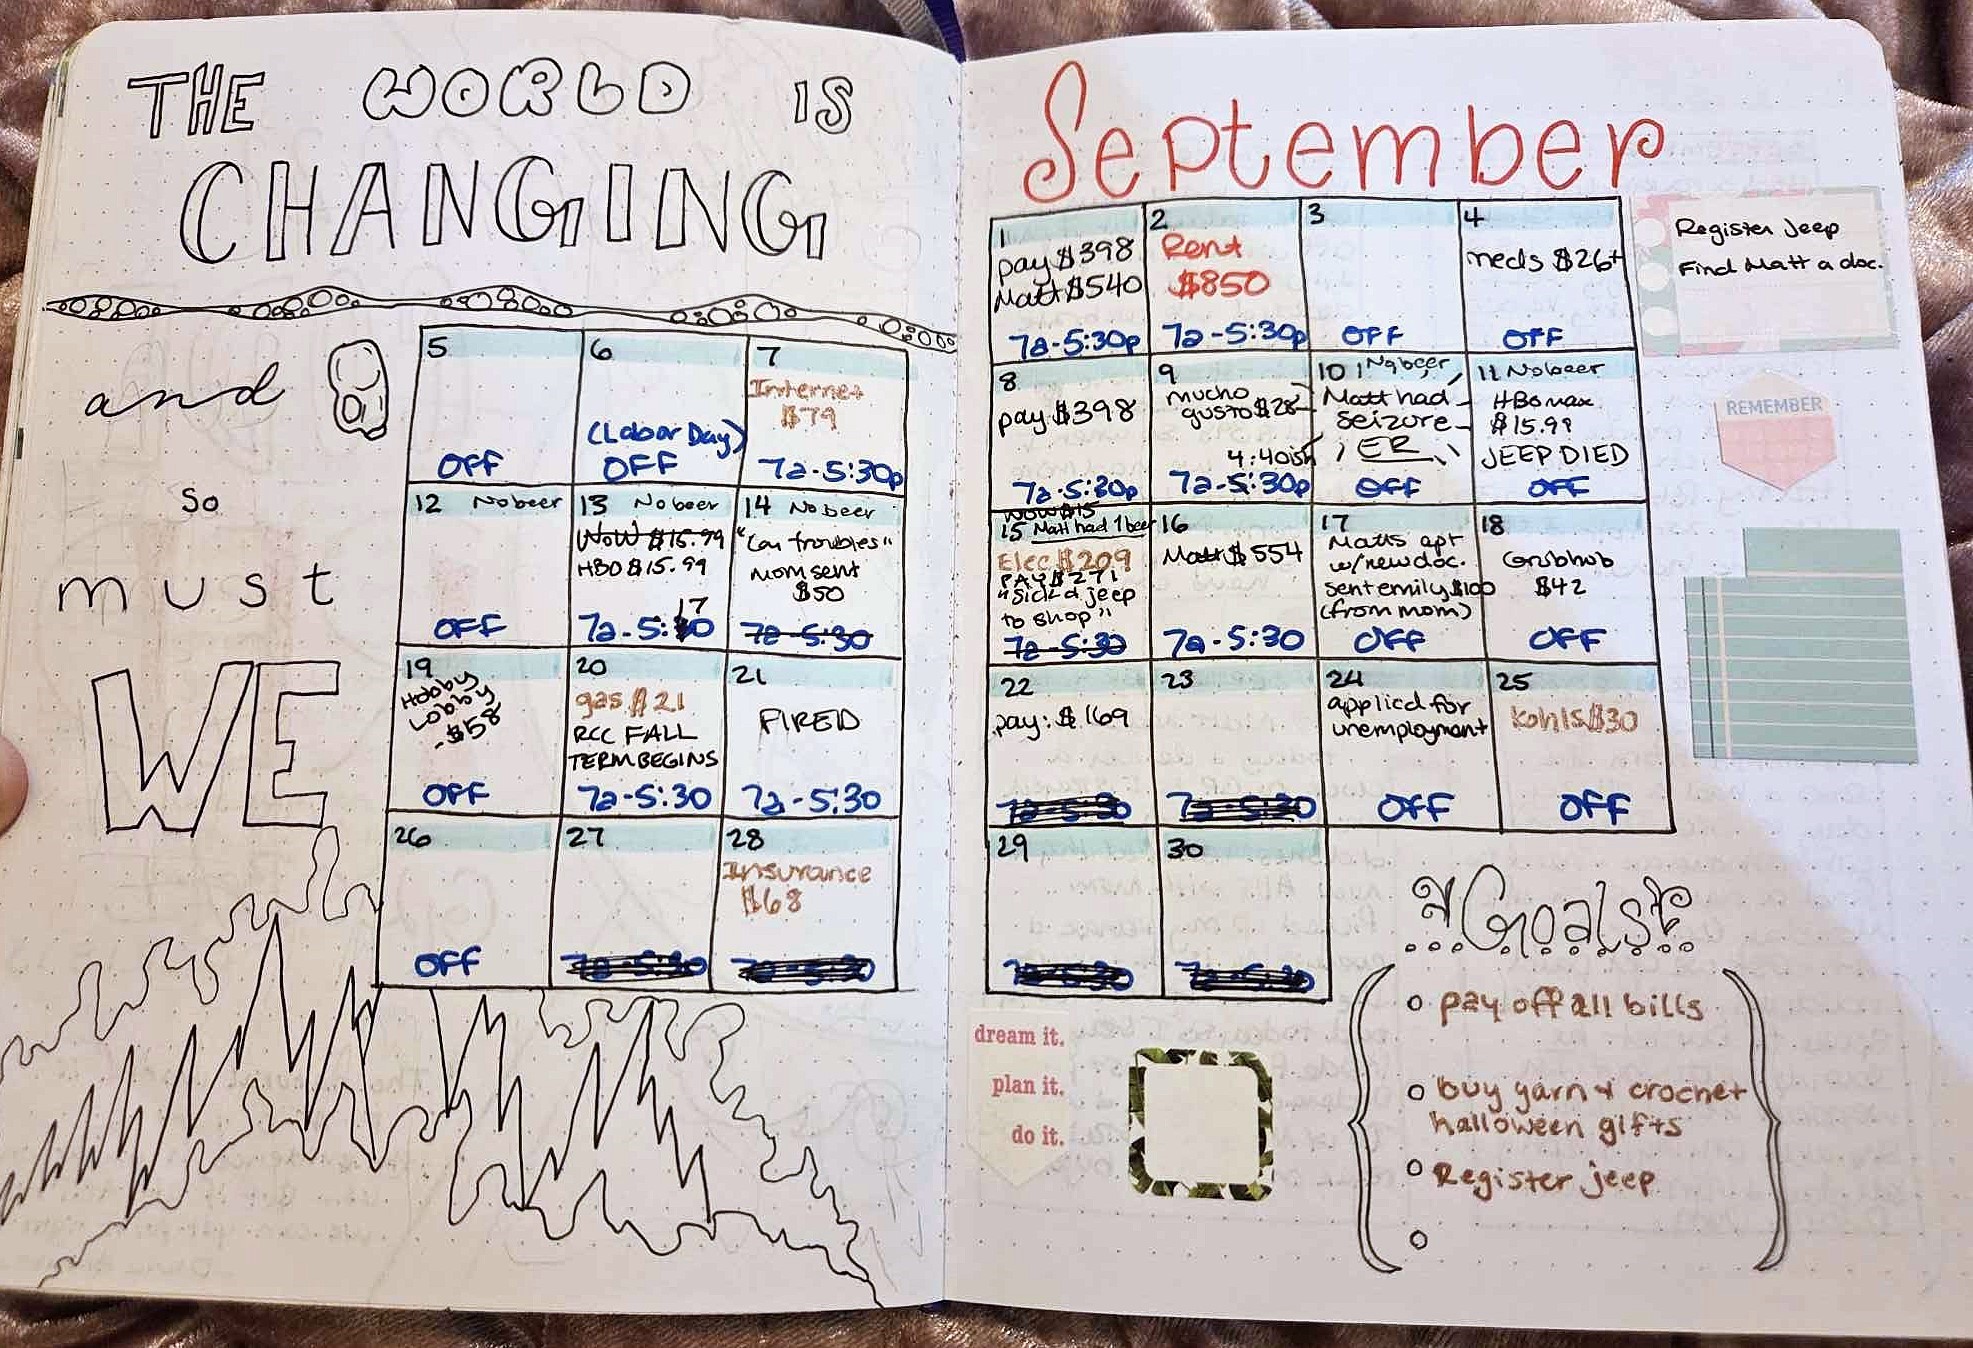 THE WORLD IS
CHANGING
and
so
must
WE
5
OFF
6
(Labor Day)
OFF
7
Internet
$79
7a-5:30p
12 No beer
OFF
13 No beer
WoW $15.99
HBO $15.99
17
7a-5:30
14 No beer
"Car troubles"
Mom sent
$50
7a-5:30
19
Hobby
Lobby
-$58
OFF
20
gas $21
RCC FALL
TERM BEGINS
7a-5:30
21
FIRED
7a-5:30
26
OFF
27
7a-5:30
28
Insurance
$68
7a-5:30
September
1
pay $398
Matt $540
7a-5:30p
2
Rent
$850
7a-5:30p
3
OFF
4
meds $26+
OFF
8
pay $398
7a-5:30p
9
mucho
gusto $28
4:40ish
7a-5:30p
10 No beer
Matt had
seizure
ER
OFF
11 No beer
HBO max
$15.99
JEEP DIED
OFF
WOW $15
15 Matt had 1 beer
Elec $209
PAY $271
"sick & jeep
to shop"
7a-5:30
16
Matt $554
7a-5:30
17
Matts apt
w/new doc.
sent emily $100
(from mom)
OFF
18
Grubhub
$42
OFF
22
pay: $169
7a-5:30
23
7a-5:30
24
applied for
unemployment
OFF
25
Kohls $30
OFF
29
7a-5:30
30
7a-5:30
Register Jeep
Find Matt a doc.
REMEMBER
dream it.
plan it.
do it.
Goals
pay off all bills
buy yarn & crochet
halloween gifts
Register jeep